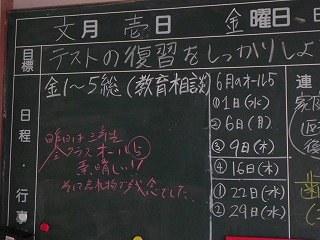 文月 壱日 金曜日
目標 テストの復習をしっかりしよ
日程・行
金1~5総(教育相談)
昨日は三年生
全クラスオール5
素晴しい!!
そして忘れ物で残念でした…
6月のオール5
①1日(水)
②6日(月)
③9日(木)
④16日(木)
①22日(水)
②29日(水)
連